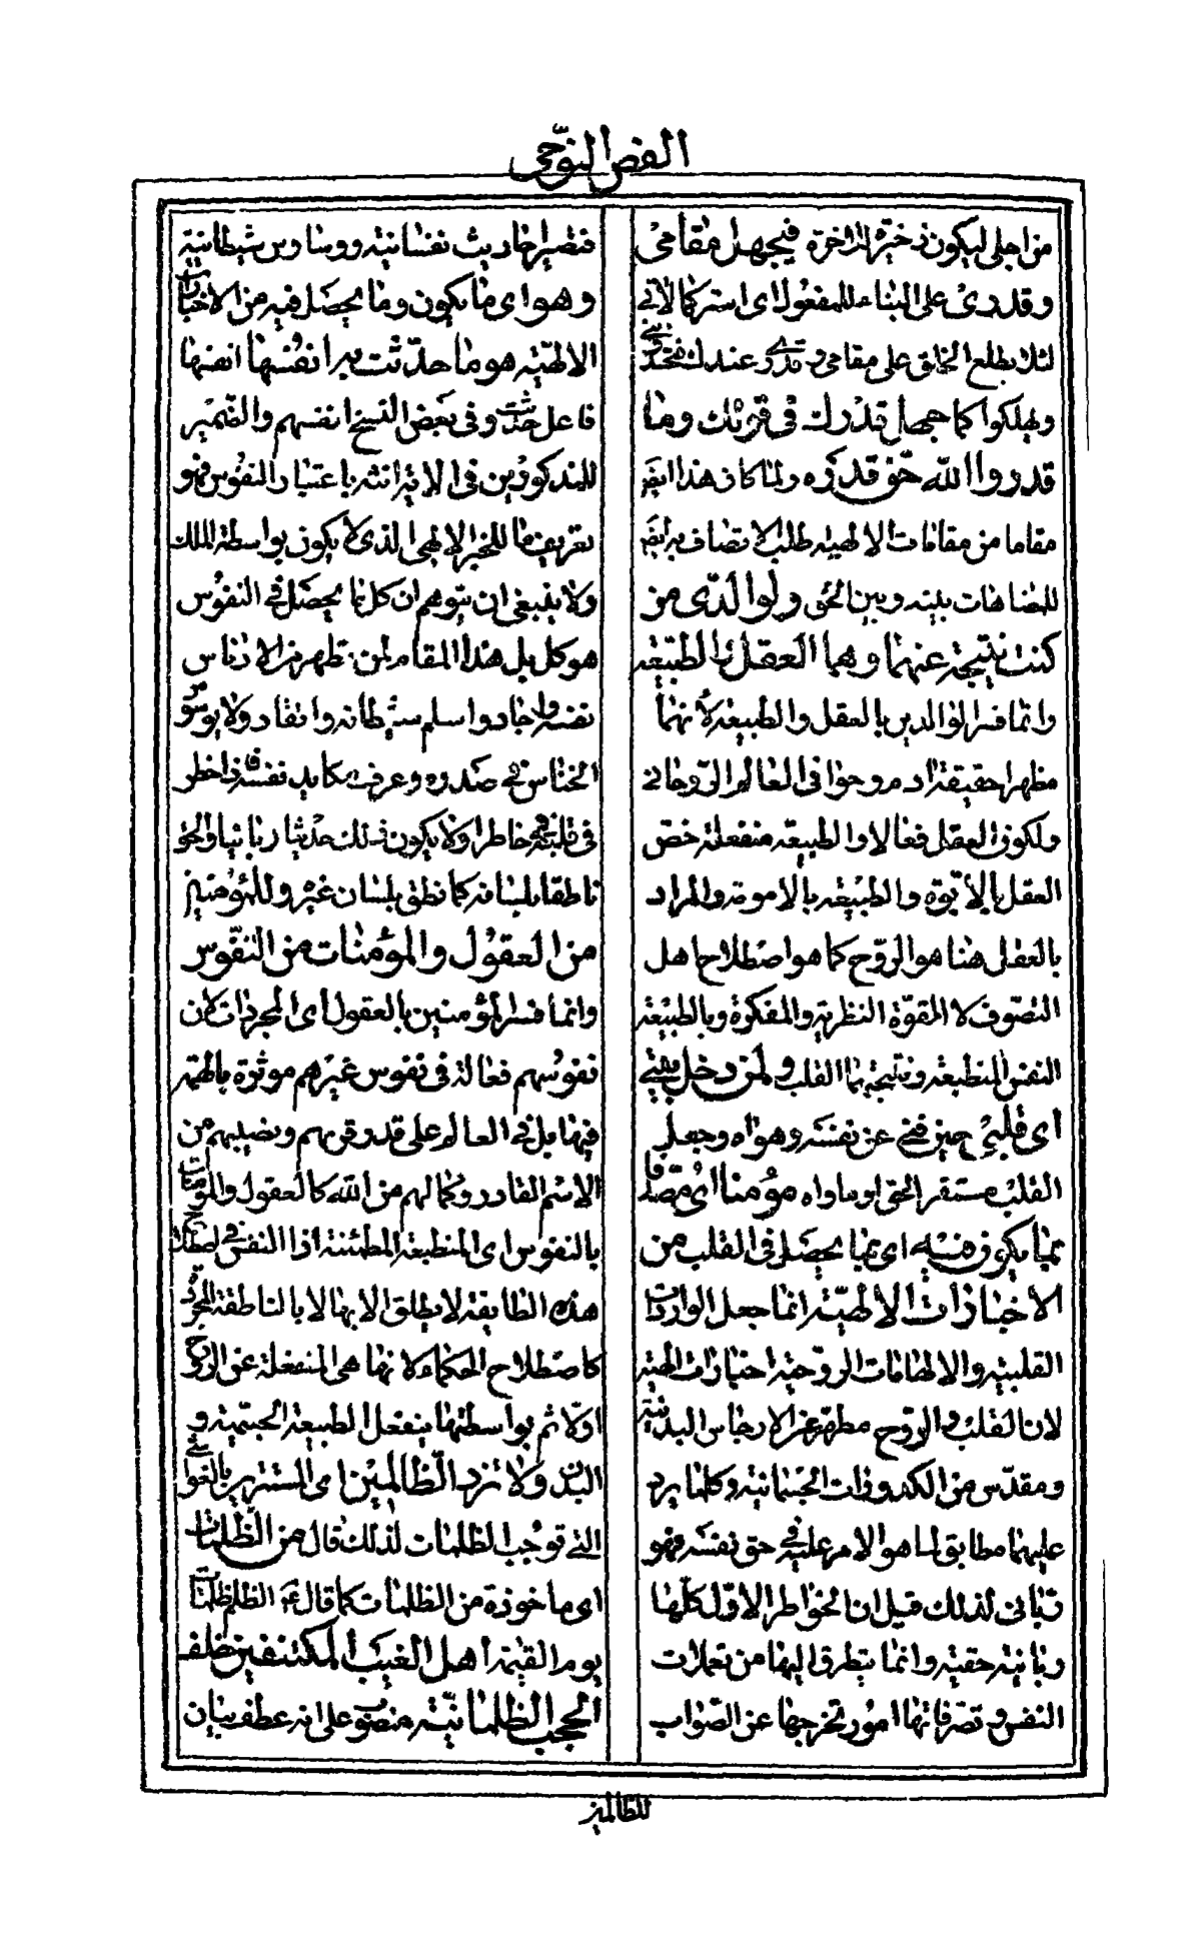 الفص النوحی
من اجلی لیکون ذخیرة للآخرة فیجهل مقامی
و قدری علی البناء للمفعول ای استر کمالاتی
لئلا یطلع الخلائق علی مقامی و قدری عندک
ویهلکوا کما جهل قدرک فی قولک وما
قدروا الله حق قدره ولما کان هذا
مقاما من مقامات الالهیته طلب الاتصاف به
للمضاهات بینه و بین الحق ولوالدی من
کنت نتیجة عنهما وهما العقل والطبیعة
وانما فسر الوالدین بالعقل والطبیعة لانهما
مظهرا حقیقة ادم وحوا فی العالم الروحانی
ولکون العقل فعالا والطبیعة منفعلة خص
العقل بالابوة والطبیعة بالامومة والمراد
بالعقل هنا هو الروح کما هو اصطلاح اهل
التصوف لا القوة النظریة والمفکرة وبالطبیعة
النفس المنطبعة ونتیجتهما القلب ولمن دخل بیتی
ای قلبی حین فنی عن نفسه وهواه وجعل
القلب مستقر الحق او ماواه مؤمنا ای مصدقا
بما یکون فیه ای بما یحصل فی القلب من
الاخبارات الالهیة انما جعل الواردات
القلبیة والالهامات الروحیة اخبارات الهیة
لان القلب والروح مطهر عن الارجاس البدنیة
ومقدس من الکدورات الجسمانیة وکلما یرد
علیهما مطابق لما هو الامر علیه فی حق نفسه فهو
ربانی لذلک قیل ان الخواطر الاول کلها
ربانیة حقیة وانما یتطرق الیها من تعملات
النفس و تصرفاتها امور تخرجها عن الصواب
فتصیر احادیث نفسانیة ووساوس شیطانیة
وهو ای ما یکون وما یحصل فیه من الاخبارات
الالهیة هو ما حدثت به انفسها انفسها
فاعل حدثت وفی بعض النسخ انفسهم والضمیر
للمذکورین فی الایة انثه باعتبار النفوس فهو
تعریف ما للخبر الالهی الذی لا یکون بواسطة الملک
ولا ینبغی ان یتوهم ان کل ما یحصل فی النفوس
هو کل بل هذا المقام لمن تطهر من الادناس
نفسه وانقاد واسلم شیطانه وانقاد ولا یوسوس
الخناس فی صدره وعرف مکاید نفسه فاخطر
فی قلبه خاطر اولا یکون ذلک حدیثا ربانیا والحق
ناطقا بلسانه کما نطق بلسان غیره وللمؤمنین
من العقول والمؤمنات من النفوس
وانما فسر المؤمنین بالعقول ای المجردات لان
نفوسهم فعالة فی نفوس غیرهم موثرة بالهمة
فیها بل فی العالم علی قدر قربهم ونصیبهم من
الاسم القادر وکمالهم من الله کالعقول والمؤمنات
بالنفوس ای المنطبعة المطمئنة اذا النفس فی اصطلاح
هذه الطایفة لا یطلق الا بها لا بالناطقة المجردة
کاصطلاح الحکماء لانها هی المنفعلة عن الروح
اولا ثم بواسطتها ینفعل الطبیعة الجسمیة و
البدن ولا تزد الظالمین ای المستترین بالغواشی
التی توجب الظلمات لذلک قال من الظلمات
ای ماخوذة من الظلمات کما قال ع الظلم ظلمات
یوم القیمة اهل الغیب المکتنفین خلف
الحجب الظلمانیة منصوب علی انه عطف بیان
للظالمین